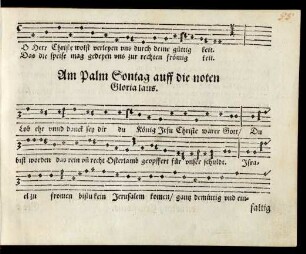 55
O Herr Christe wolst verleyen uns durch deine güttig keit.
Das die speise mag gedeyen uns zur rechten frömig keit.
Am Palm Sontag auff die noten
Gloria laus.
Lob ehr unnd danck sey dir du König Jesu Christe warer Gott/ Du
bist worden das rein uñ recht Osterland geopffert für unser schuldt. Isra-
el zu fromen bistu kein Jerusalem komen/ gantz demütig und ein-
faltig